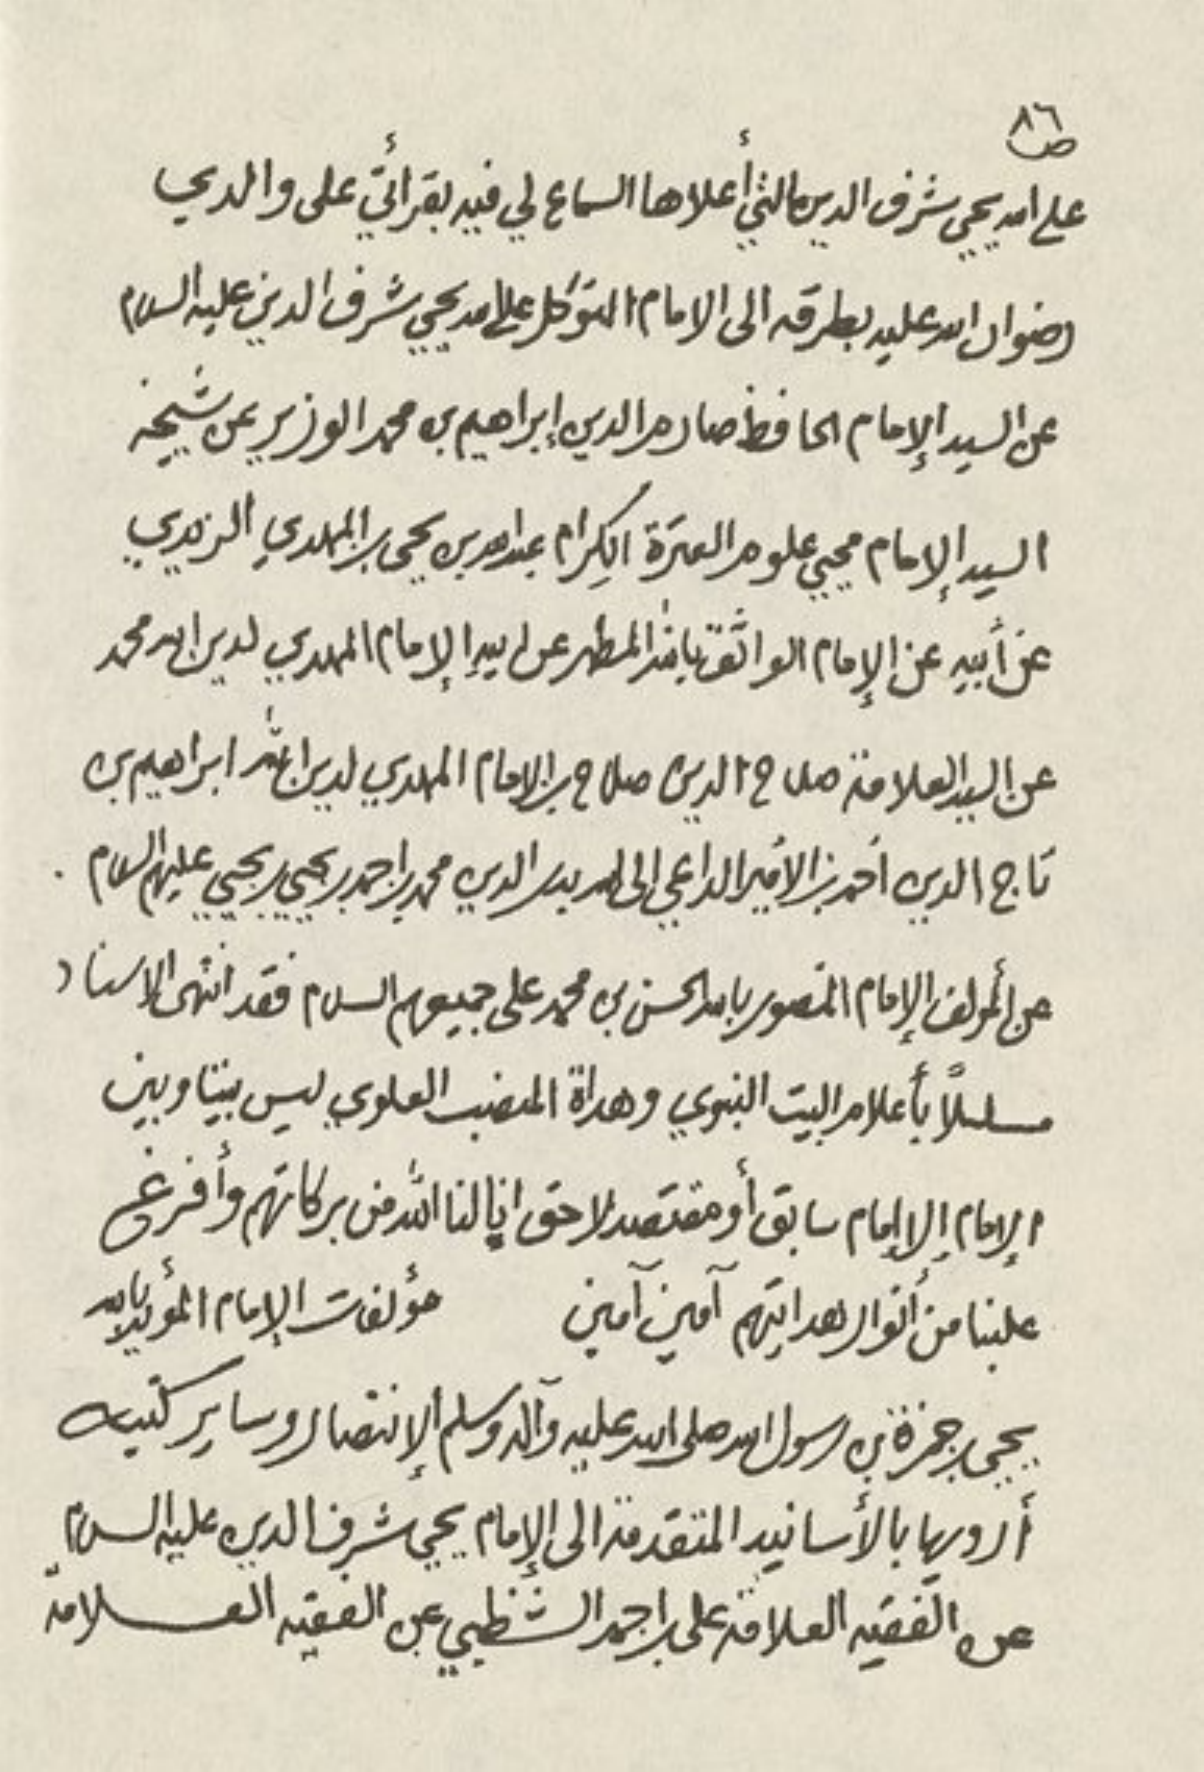 ٨٦
ص
على الله يحيى شرف الدين التي أعلاها السماع لي فيه بقرائتي على والدي
رضوان الله عليه بطرقه الى الامام المتوكل على الله يحيى شرف الدين عليه السلام
عن السيد الإمام الحافظ صارم الدين إبراهيم بن محمد الوزير عن شيخه
السيد الإمام محيي علوم العترة الكرام عبد الله بن يحيى بن المهدي الزيدي
عن أبيه عن الإمام الواثق بالله المطهر عن ابيه الإمام المهدي لدين الله محمد
عن السيد العلامة صلاح الدين صلاح بن الامام المهدي لدين الله ابراهيم بن
تاج الدين أحمد بن الأمير الداعي الى الله بدر الدين محمد بن احمد بن يحيى بن يحيى عليهم السلام .
عن المؤلف الإمام المنصور بالله الحسن بن محمد على جميعهم السلام فقد انتهى الاسناد
مسلسلاً بأعلام البيت النبوي وهداة المنصب العلوي ليس بيننا وبين
الإمام إلا إمام سابق أو مقتصد لاحق انالنا الله من بركاتهم وأفرغ
علينا من أنوار هدايتهم آمين آمين مؤلفات الإمام المؤيد بالله
يحيى بن حمزة بن رسول الله صلى الله عليه وآله وسلم الإنتصار وساير كتبه
أرويها بالأسانيد المتقدمة الى الإمام يحيى شرف الدين عليه السلام
عن الفقيه العلامة على بن احمد الشظبي عن الفقيه العلامة